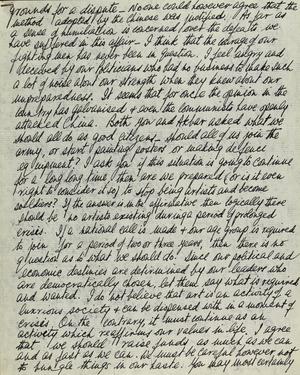 grounds for a dispute. No one could however agree that the
method adopted by the Chinese was justified. As far as
a sense of humiliation is concerned over the defeats we
have suffered in this affair. I think that the courage of our
fighting men has never been in question. I feel angry and
deceived by our politicians who had no business to make such
a lot of noise about our strength when they knew about our
unpreparedness. It seems that for once the opinion in the
country has galvanised & even the communists have openly
attacked China. Both you and Akbar asked what we
should all do as good citizens, should all of us join the
army, or start painting posters or making defence
equipment? I ask you if this situation is going to continue
for a long long time, then are we prepared (or is it even
right to consider it so) to stop being artists and become
soldiers? If the answer is in the affirmative then logically there
should be no artists existing during a period of prolonged
crisis. If a national call is made & our age group is required
to join for a period of two or three years, then there is no
question as to what we should do. Since our political and
economic destinies are determined by our leaders who
are democratically chosen, let them say what is required
and wanted. I do not believe that art is an activity of a
luxurious society & can be dispensed with in a moment of
crisis. On the contrary, it must continue as an
activity which reaffirms our values in life. I agree
that we should raise funds, as much as we can
and as fast as we can. We must be careful however not
to bungle things in our haste. You may most certainly